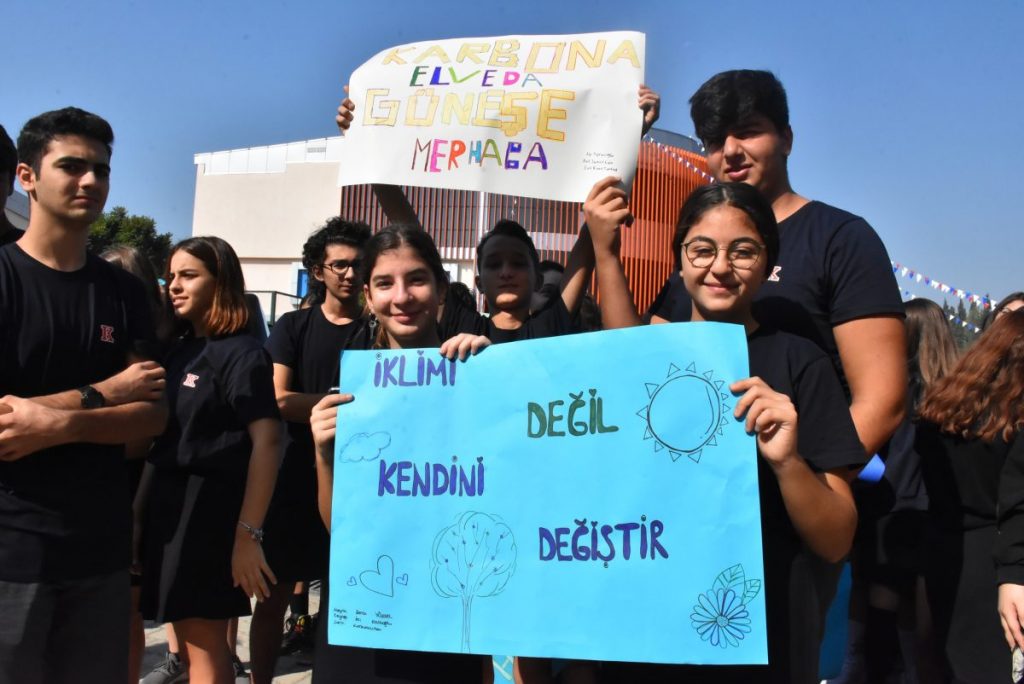 KARBONA
ELVEDA
GÜNEŞE
MERHABA
İKLİMİ
DEĞİL
KENDİNİ
DEĞİŞTİR
K
K
K